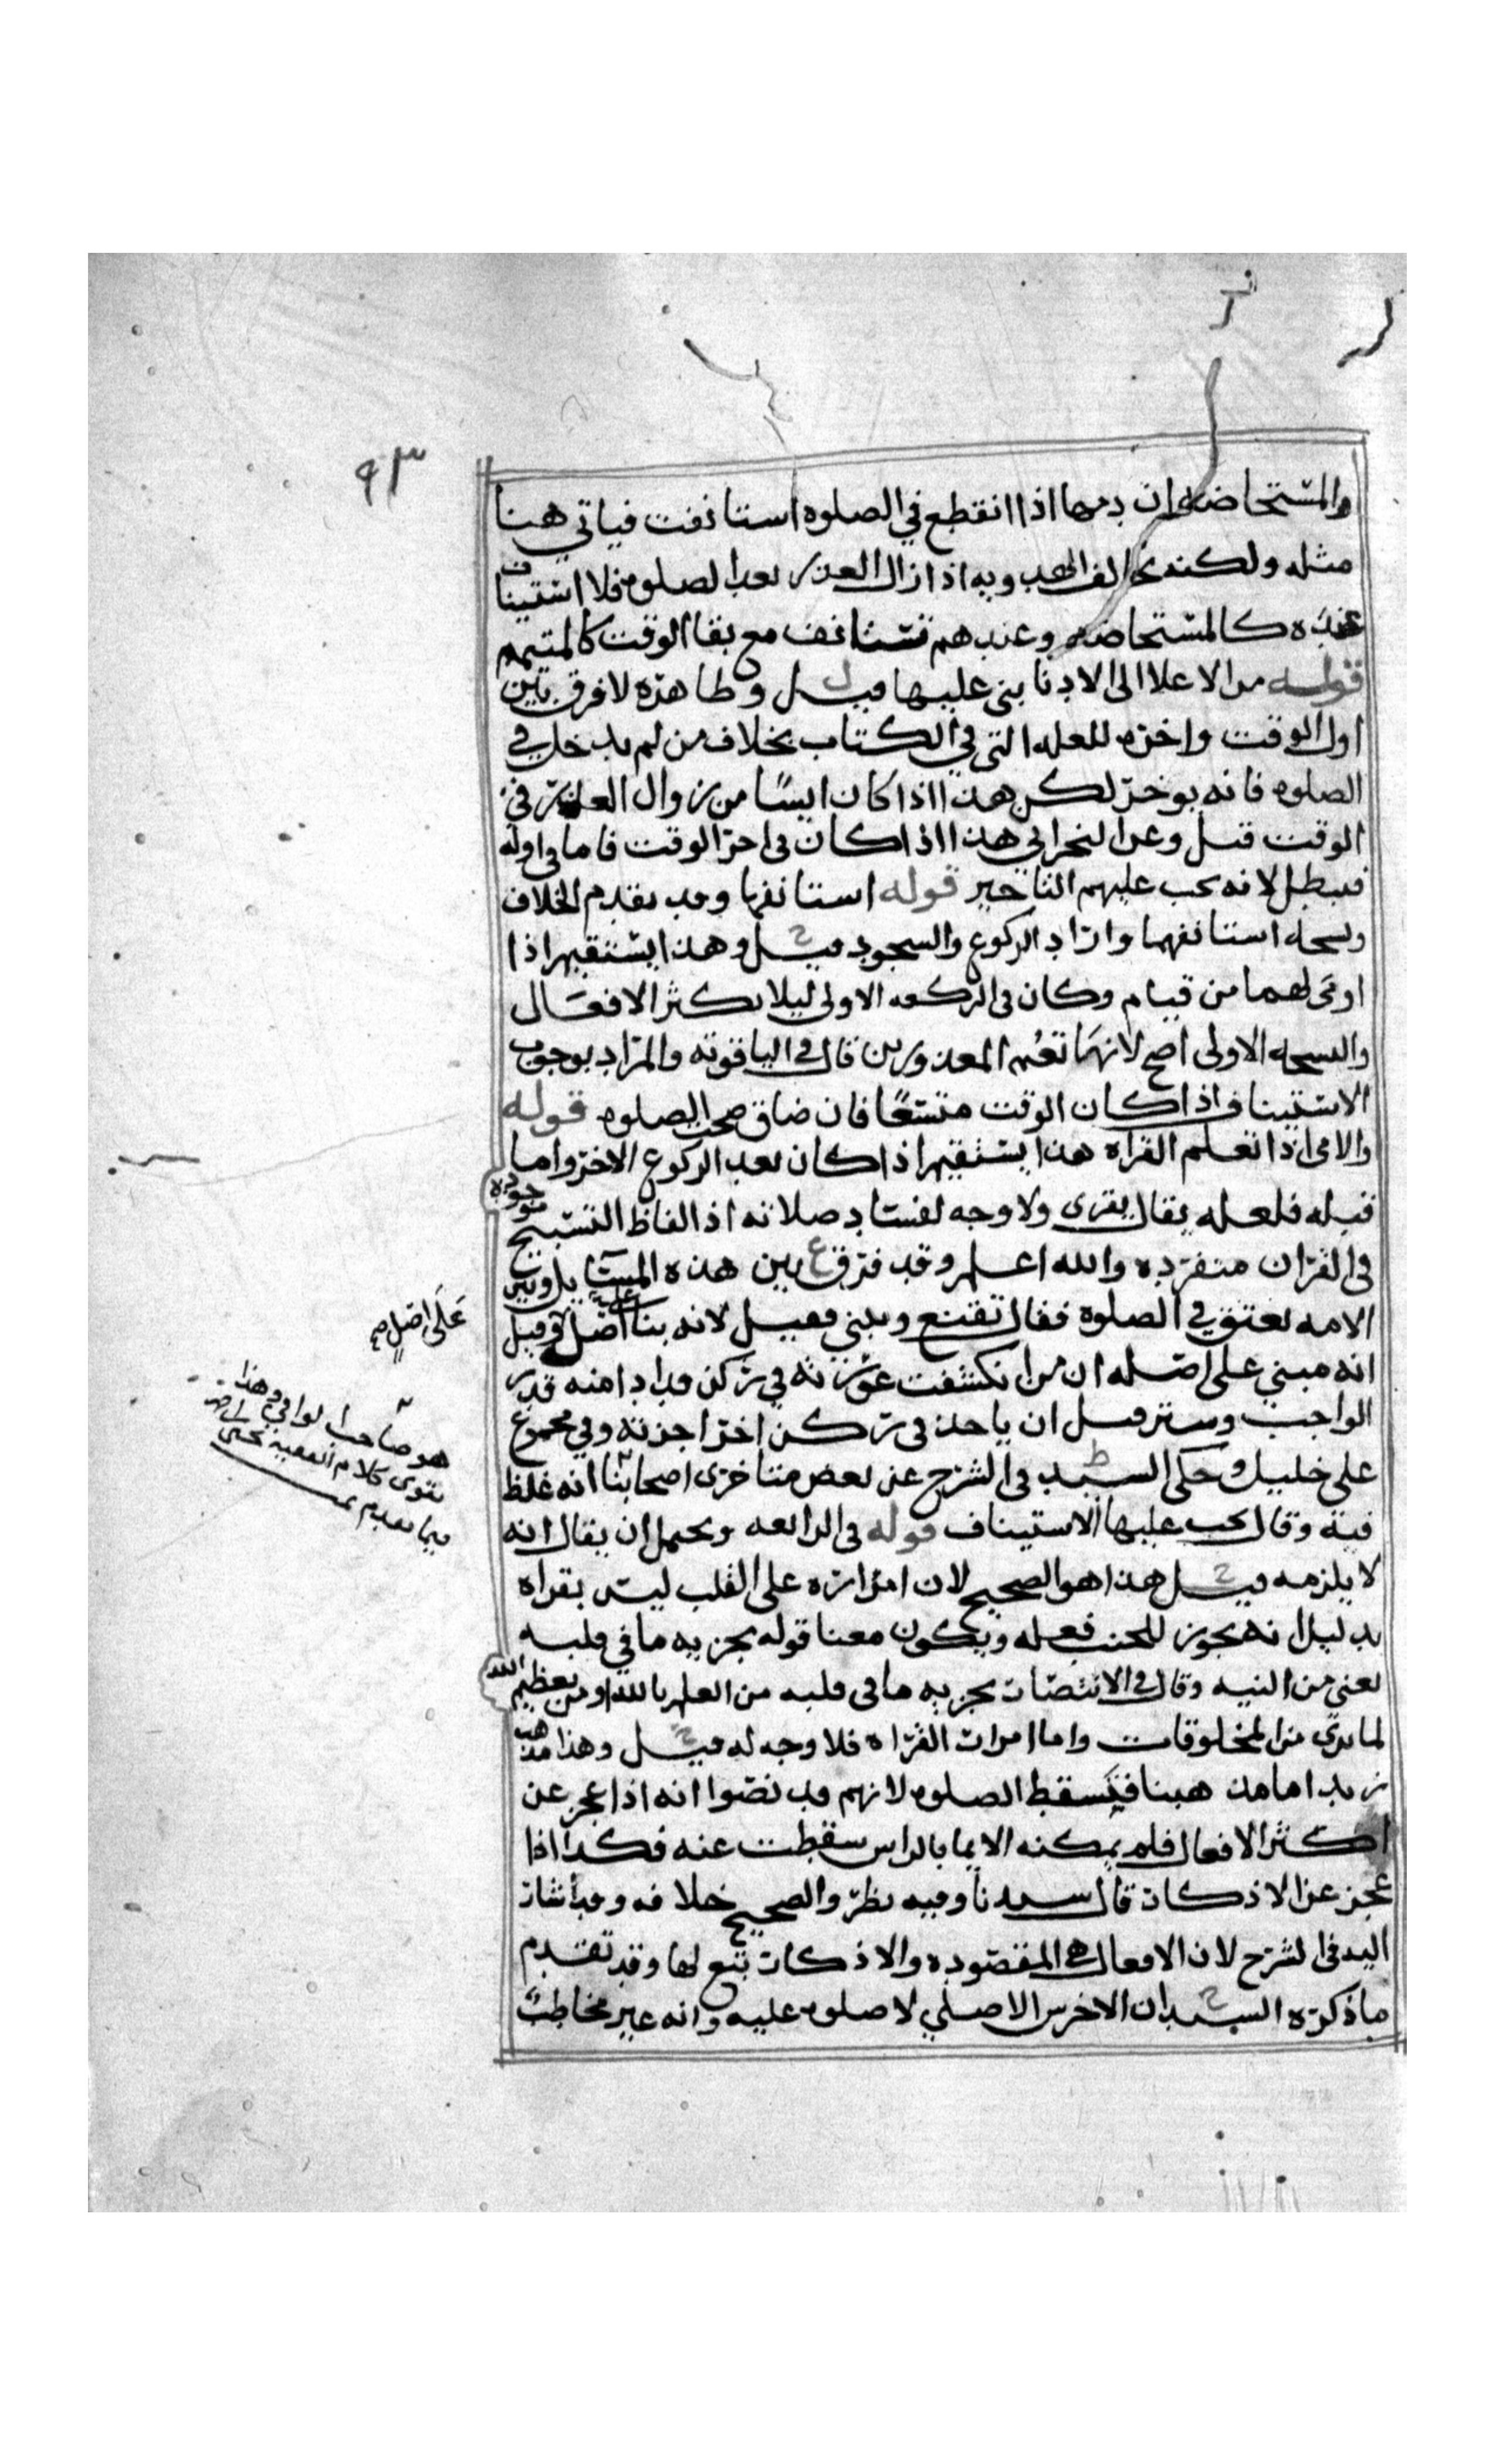 ٩٣
والمستحاضه ان دمها اذا انقطع في الصلوه استانفت فياتي هنا
مثله ولكنه يخالف الهدويه اذا زال العذر بعد الصلوه فلا استيناف
عنده كالمستحاضه وعندهم تستانف مع بقا الوقت كالمتيمم
قوله من الاعلا الى الادنا بنى عليها قيل ل وظاهره لا فرق بين
اول الوقت واخره للعله التي في الكتاب بخلاف من لم يدخل في
الصلوه فانه يوخر لكن هذا اذا كان ايسًا من زوال العذر في
الوقت قيل وعن النجراني هذا اذا كان في اخر الوقت فاما في اوله
فيبطل لانه يجب عليهم التاخير قوله استانفها وقد تقدم الخلاف
ونسخه استانفهما واراد الركوع والسجود قيل ح وهذا يستقيم اذا
اومى لهما من قيام وكان في الركعه الاولى ليلا يكثر الافعال
والنسخه الاولى اصح لانها تعم المعذورين قال في الياقوته والمراد بوجوب
الاستيناف اذا كان الوقت متسعًا فان ضاق صحت الصلوه قوله
والامي اذا تعلم القراه هذا يستقيم اذا كان بعد الركوع الاخر واما
قبله فلعله يقال يقرى ولا وجه لفساد صلاته اذ الفاظ التسبيح موجوده
في القران منفرده والله اعلم وقد فرق ع بين هذه المسايل وبين
الامه تعتق في الصلوة فقال تقنع وتبني فقيل لانه بنا عليه اصل وقيل
على اصل صح
انه مبني على اصله ان من انكشفت عورته في ركن قد ادا منه قدر
الواجب وستر قبل ان ياخذ في ركن اخر اجزته وفي مجموع
على خليل وحكى السيد ط في الشرح عن بعض متاخري اصحابنا انه غلط
هو صاحب الوافي وهذا
يقوى كلام الفقيه يحيى
فيما تقدم
فيه وقال يجب عليها الاستيناف قوله في الرابعه ويحتمل ان يقال انه
لا يلزمه قيل ح هذا هو الصحيح لان امراره على القلب ليس بقراه
بدليل انه يجوز للجنب فعله ويكون معنا قوله يجزيه ما في قلبه
يعني من النيه وقال في الانتصار يجزيه ما في قلبه من العلم بالله ومن تعظيم الله
لما يرى من المخلوقات واما امرار القراه فلا وجه له قيل ح وهذا مذهب
زيد اما مذهبنا فتسقط الصلوه لانهم قد نصوا انه اذا عجز عن
اكثر الافعال فلم يمكنه الايما بالراس سقطت عنه فكذا اذا
عجز عن الاذكار قال سيدنا وفيه نظر والصحيح خلافه وقد اشار
اليه في الشرح لان الافعال هي المقصوده والاذكار تبع لها وقد تقدم
ما ذكره السيد ح ان الاخرس الاصلي لا صلوه عليه وانه غير مخاطب